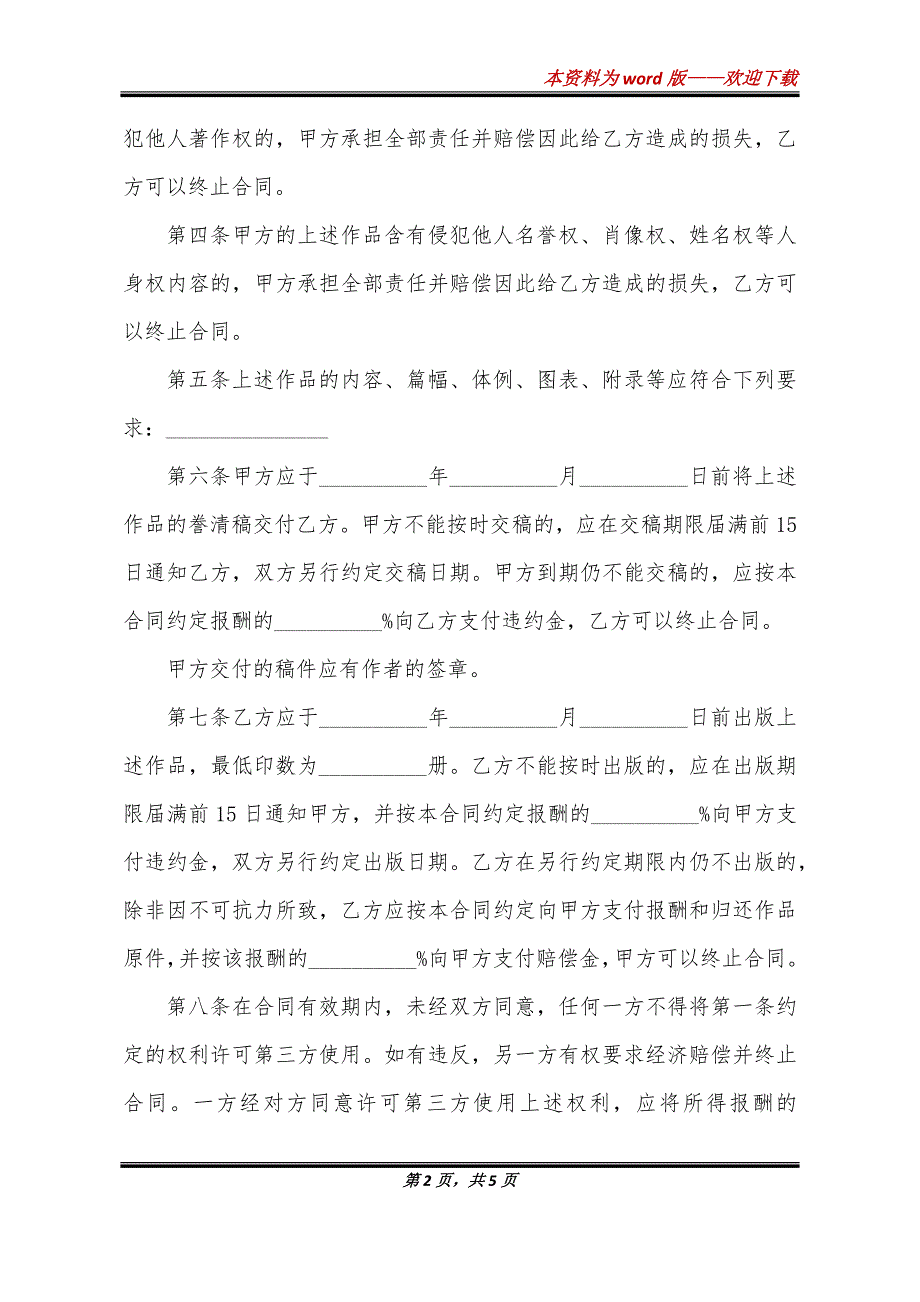 本资料为 word 版——欢迎下载
犯他人著作权的，甲方承担全部责任并赔偿因此给乙方造成的损失，乙
方可以终止合同。
第四条甲方的上述作品含有侵犯他人名誉权、肖像权、姓名权等人
身权内容的，甲方承担全部责任并赔偿因此给乙方造成的损失，乙方可
以终止合同。
第五条上述作品的内容、篇幅、体例、图表、附录等应符合下列要
求：_______________
第六条甲方应于__________年__________月__________日前将上述
作品的誊清稿交付乙方。甲方不能按时交稿的，应在交稿期限届满前 15
日通知乙方，双方另行约定交稿日期。甲方到期仍不能交稿的，应按本
合同约定报酬的__________%向乙方支付违约金，乙方可以终止合同。
甲方交付的稿件应有作者的签章。
第七条乙方应于__________年__________月__________日前出版上
述作品，最低印数为__________册。乙方不能按时出版的，应在出版期
限届满前 15 日通知甲方，并按本合同约定报酬的__________%向甲方支
付违约金，双方另行约定出版日期。乙方在另行约定期限内仍不出版的，
除非因不可抗力所致，乙方应按本合同约定向甲方支付报酬和归还作品
原件，并按该报酬的__________%向甲方支付赔偿金，甲方可以终止合同。
第八条在合同有效期内，未经双方同意，任何一方不得将第一条约
定的权利许可第三方使用。如有违反，另一方有权要求经济赔偿并终止
合同。一方经对方同意许可第三方使用上述权利，应将所得报酬的
第 2 页，共 5 页